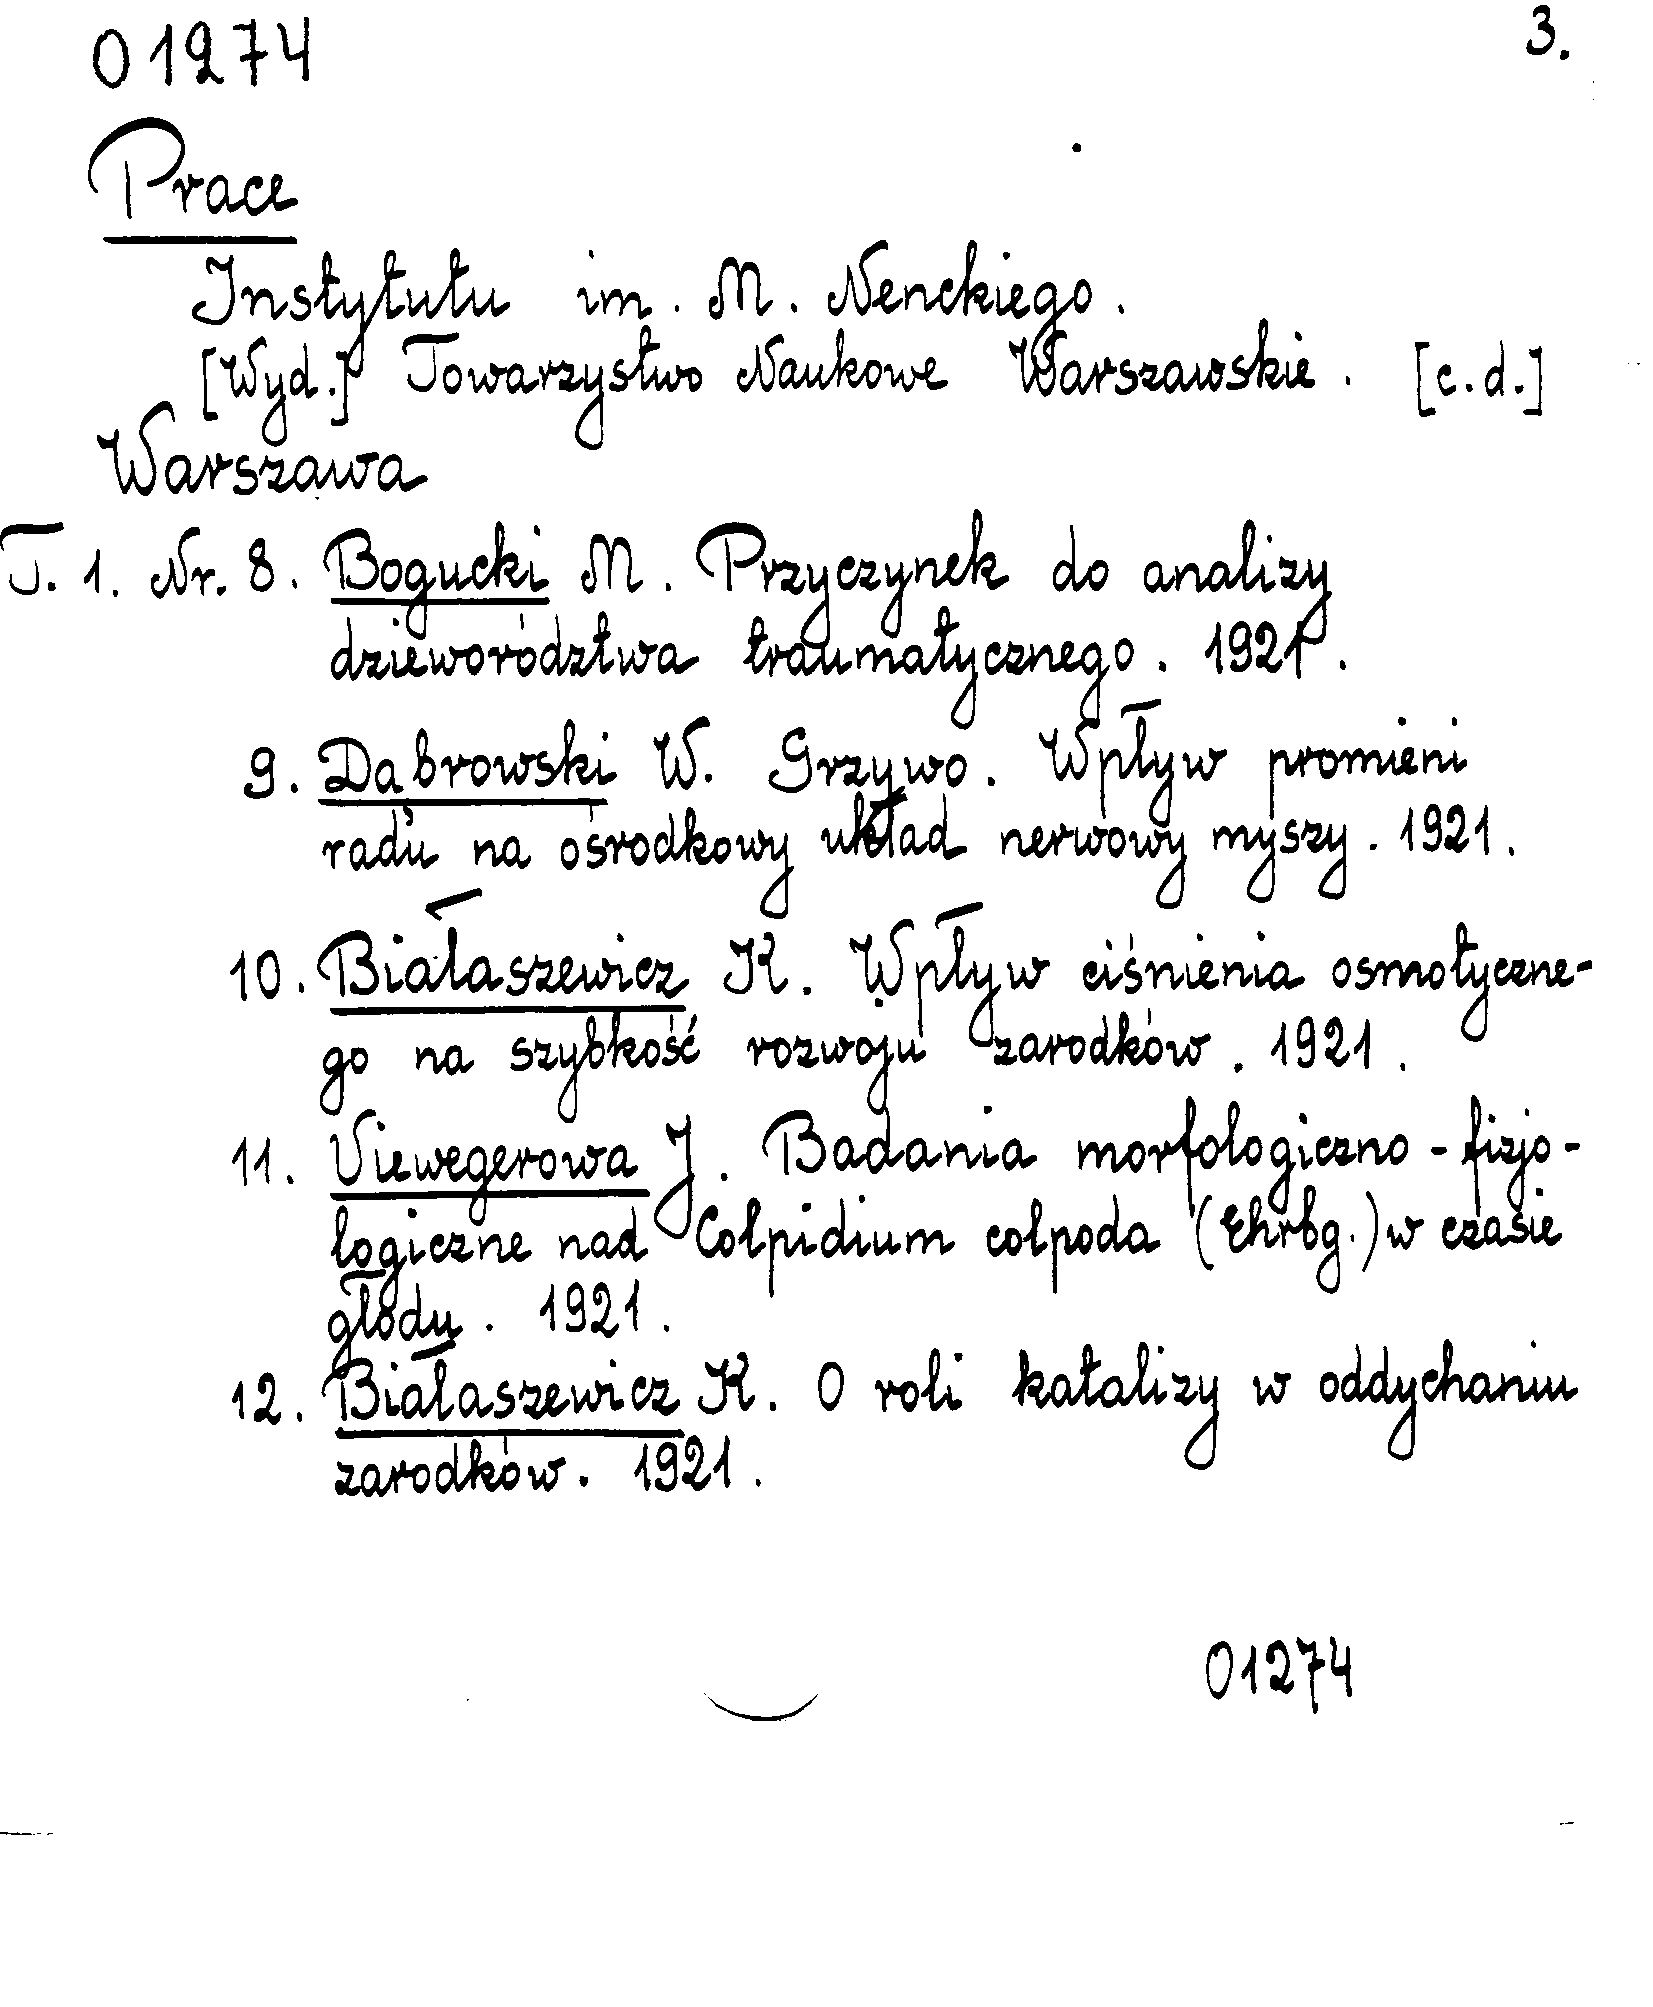 01274
3.
Prace
Instytutu im. M. Nenckiego.
[Wyd.] Towarzystwo Naukowe Warszawskie. [c.d.]
Warszawa
T. 1. Nr. 8. Bogucki M. Przyczynek do analizy
dzieworództwa traumatycznego. 1921.
9. Dąbrowski W. Grzywo. Wpływ promieni
radu na ośrodkowy układ nerwowy myszy. 1921.
10. Białaszewicz K. Wpływ ciśnienia osmotyczne-
go na szybkość rozwoju zarodków. 1921.
11. Viewegerowa J. Badania morfologiczno-fizjo-
logiczne nad Colpidium colpoda (Ehrbg.) w czasie
głodu. 1921.
12. Białaszewicz K. O roli katalizy w oddychaniu
zarodków. 1921.
01274